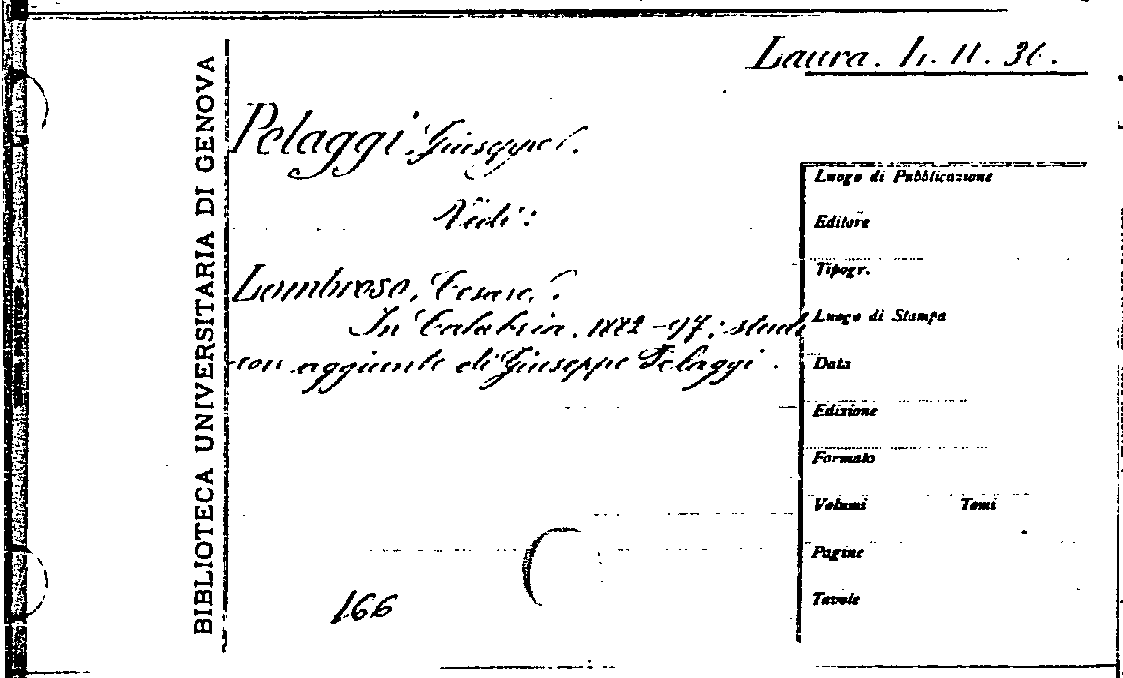 Laura. L. 11. 31.
BIBLIOTECA UNIVERSITARIA DI GENOVA
Pelaggi Giuseppe.
Vedi:
Lombroso, Cesare.
In Calabria. 1882-97: studi
con aggiunte di Giuseppe Pelaggi.
166
Luogo di Pubblicazione
Editore
Tipogr.
Luogo di Stampa
Data
Edizione
Formato
Volumi Tomi
Pagine
Tavole